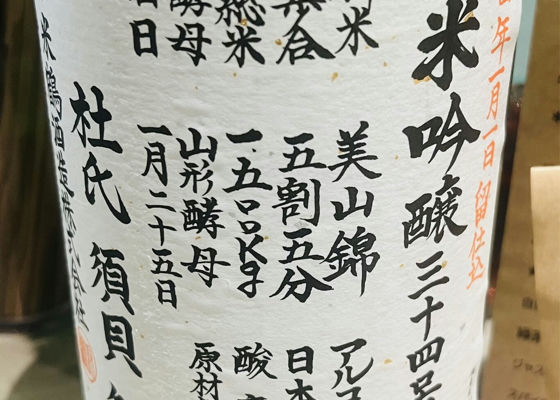 年一月一日 留仕込
米吟醸三十四号
米 美山錦 アルコ
合 五割五分 日本
総米 一、五〇〇Kg 酸
酵母 山形酵母 原材
日 一月二十五日
杜氏 須貝
米鶴酒造株式会社